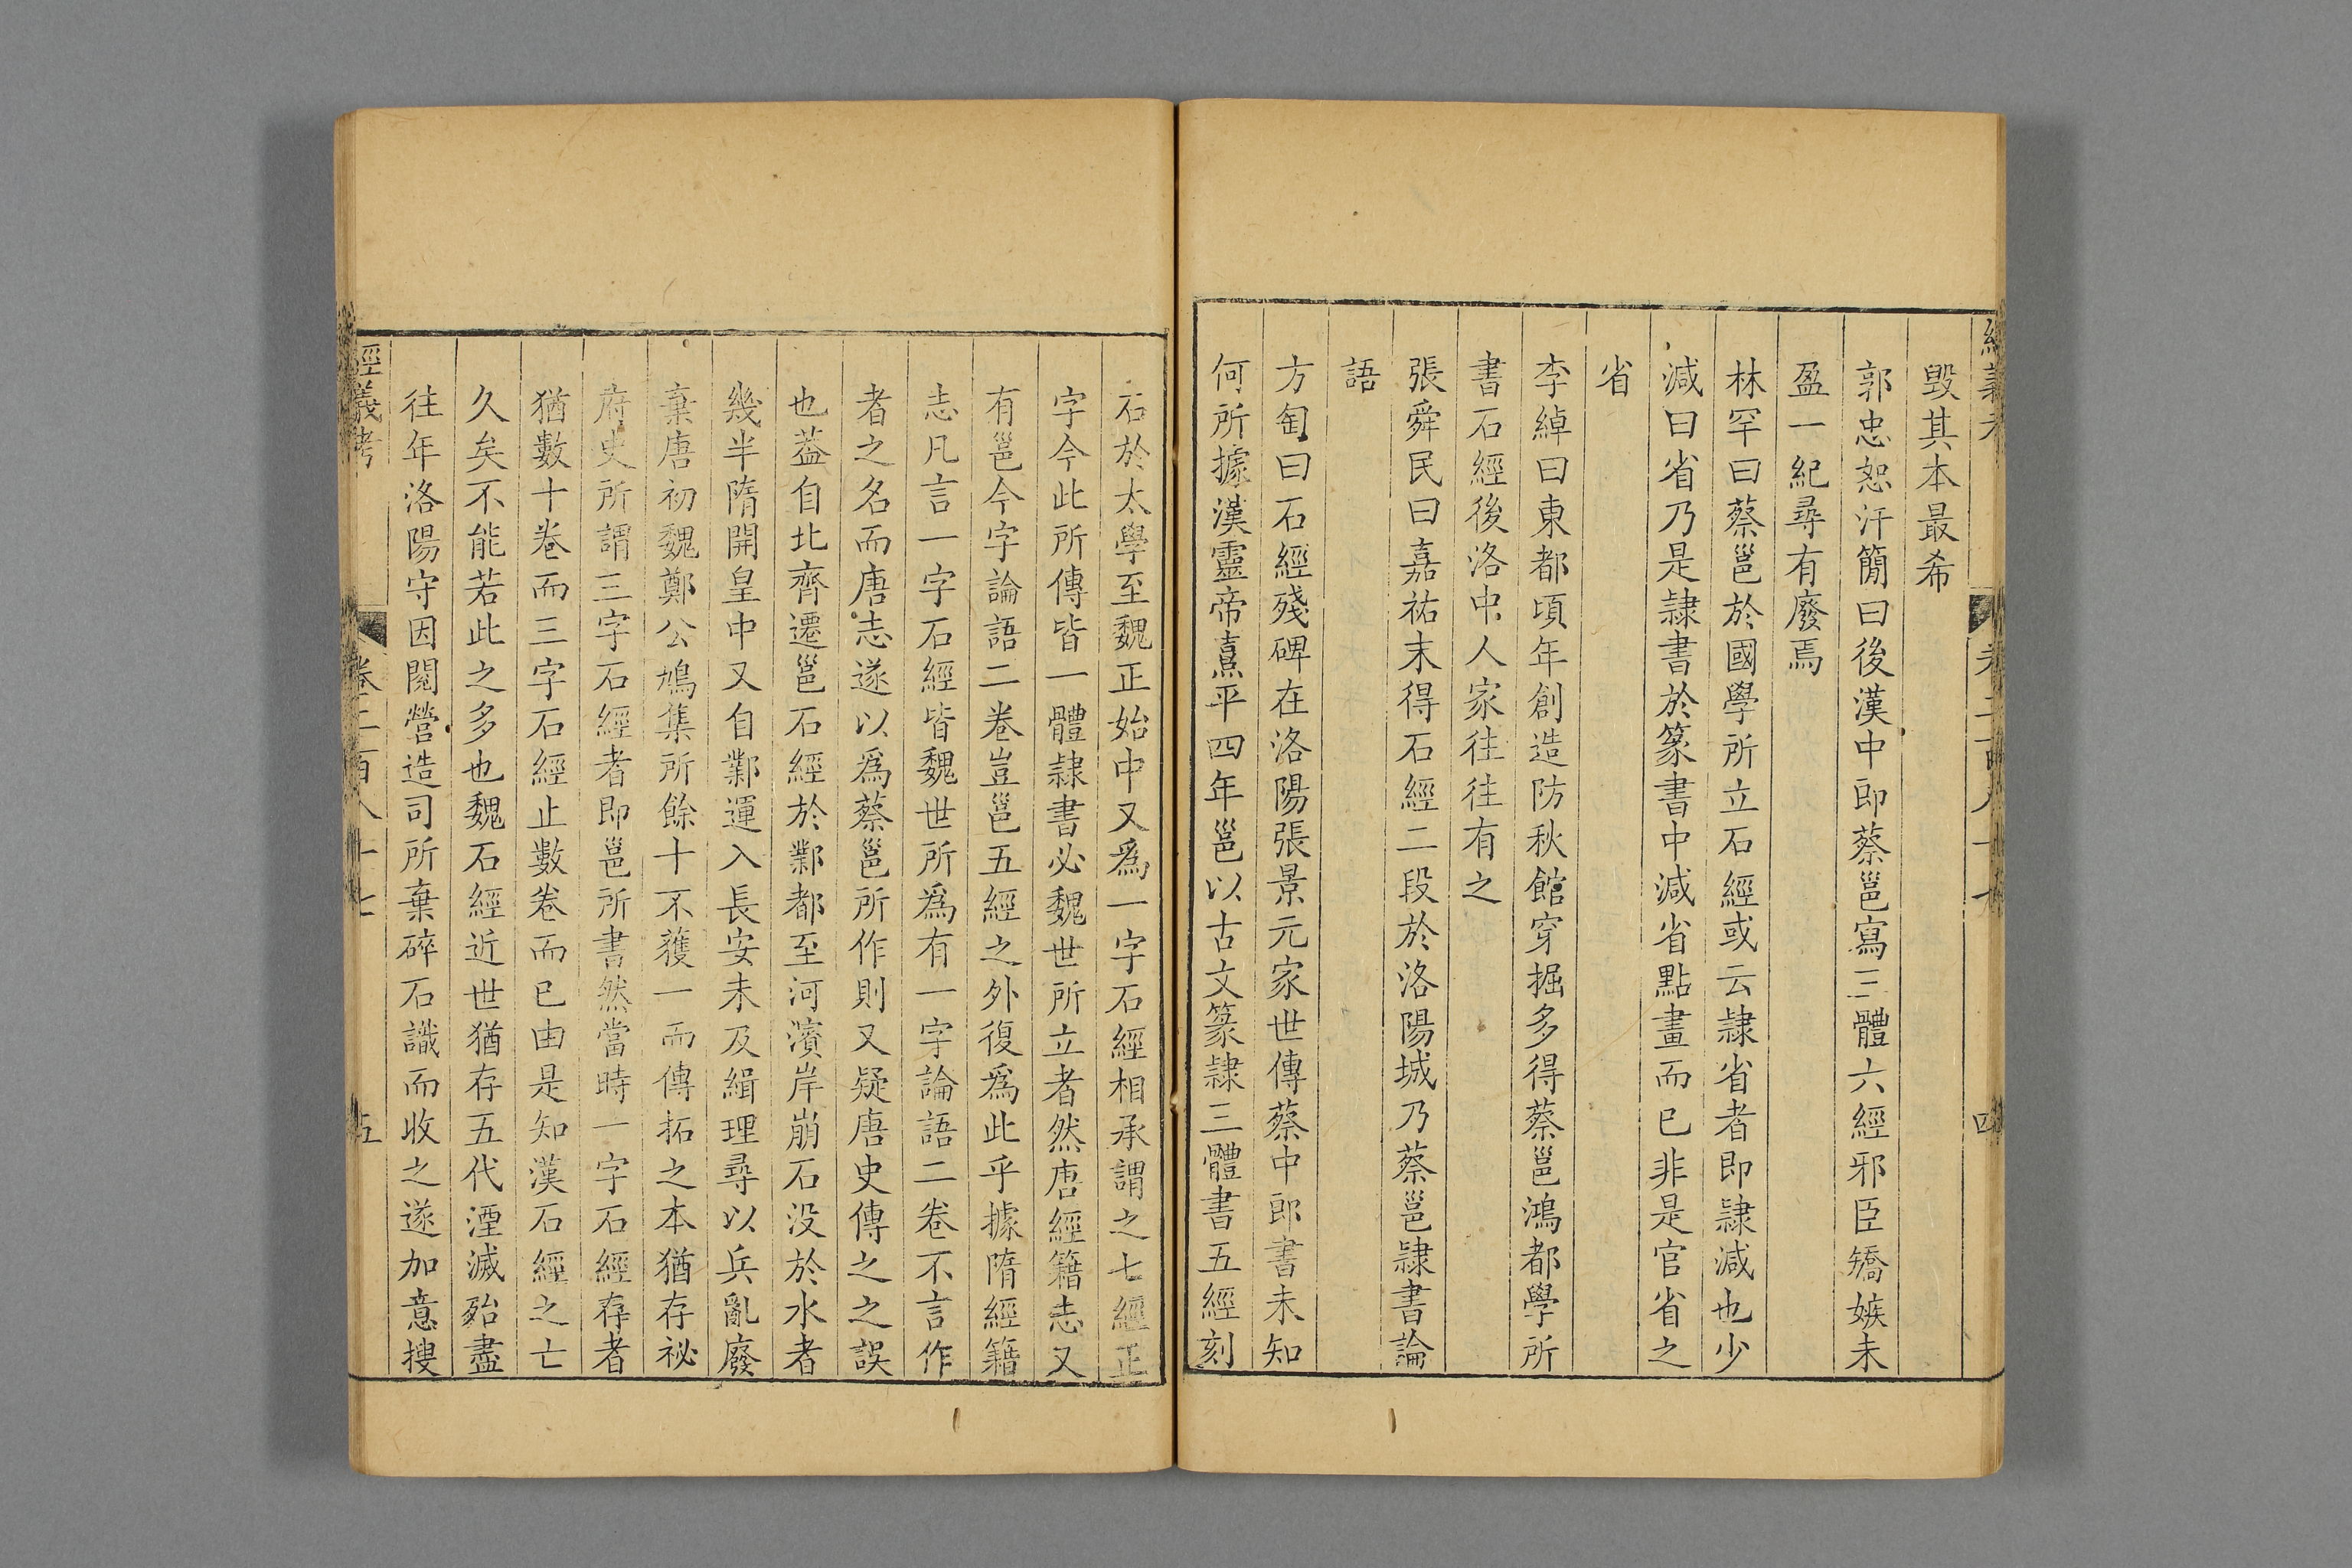 經義考 卷二百八十七 四
毀其本最希
郭忠恕汗簡曰後漢中郎蔡邕寫三體六經邪臣矯嫉未
盈一紀尋有廢焉
林罕曰蔡邕於國學所立石經或云隷省者即隷減也少
減曰省乃是隷書於篆書中減省點畫而已非是官省之
省
李綽曰東都頃年創造防秋館穿掘多得蔡邕鴻都學所
書石經後洛中人家往往有之
張舜民曰嘉祐末得石經二段於洛陽城乃蔡邕隷書論
語
方匋曰石經殘碑在洛陽張景元家世傳蔡中郎書未知
何所據漢靈帝熹平四年邕以古文篆隷三體書五經刻
石於太學至魏正始中又爲一字石經相承謂之七經正
字今此所傳皆一體隷書必魏世所立者然唐經籍志又
有邕今字論語二卷豈邕五經之外復爲此乎據隋經籍
志凡言一字石經皆魏世所爲有一字論語二卷不言作
者之名而唐志遂以爲蔡邕所作則又疑唐史傳之之誤
也葢自北齊遷邕石經於鄴都至河濱岸崩石没於水者
幾半隋開皇中又自鄴運入長安未及緝理尋以兵亂廢
棄唐初魏鄭公鳩集所餘十不獲一而傳拓之本猶存祕
府史所謂三字石經者即邕所書然當時一字石經存者
猶數十卷而三字石經止數卷而已由是知漢石經之亡
久矣不能若此之多也魏石經近世猶存五代湮滅殆盡
往年洛陽守因閱營造司所棄碎石識而收之遂加意搜
經義考 卷二百八十七 五